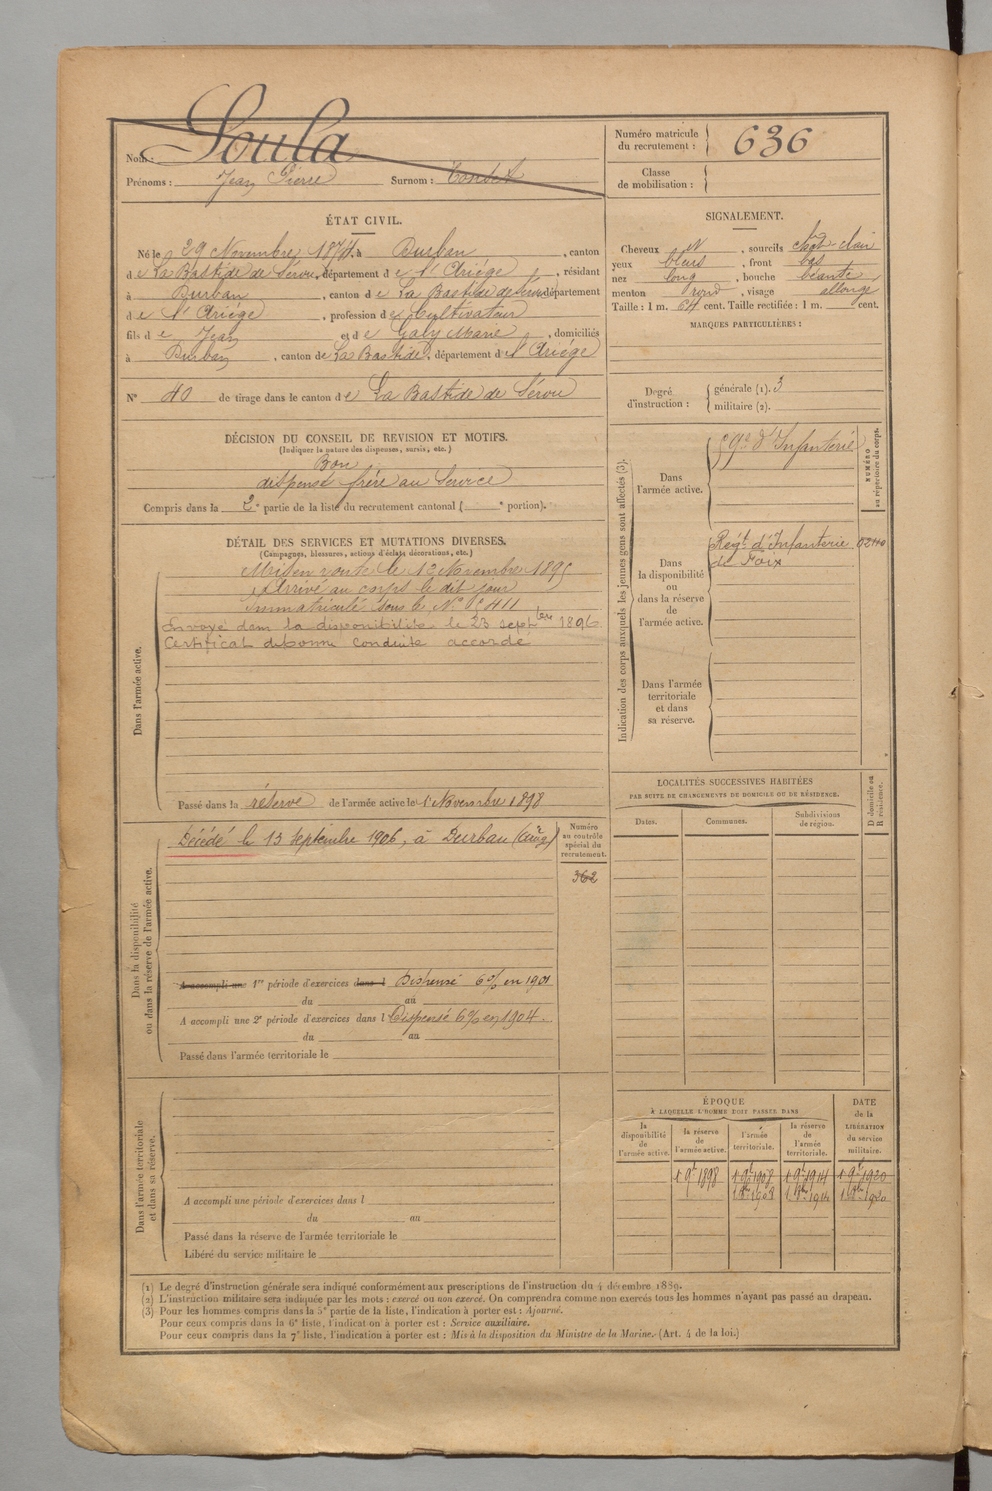 Nom : Soula
Prénoms : Jean Pierre Surnom :
Numéro matricule du recrutement : 636
Classe de mobilisation :
ÉTAT CIVIL.
Né le 29 Novembre 1874, à Durban, canton
de La Bastide de Sérou, département de l'Ariège, résidant
à Durban, canton de La Bastide de Sérou département
de l'Ariège, profession de Cultivateur
fils de Jean et de Galy Marie, domiciliés
à Durban, canton de La Bastide, département de l'Ariège
N° 40 de tirage dans le canton de La Bastide de Sérou
DÉCISION DU CONSEIL DE REVISION ET MOTIFS.
(Indiquer la nature des dispenses, sursis, etc.)
Bon
dispensé frère au Service
Compris dans la 2e partie de la liste du recrutement cantonal ( e portion).
DÉTAIL DES SERVICES ET MUTATIONS DIVERSES.
(Campagnes, blessures, actions d'éclat, décorations, etc.)
Dans l'armée active.
Mis en route le 12 Novembre 1895
Arrivé au corps le dit jour
Immatriculé sous le N°
Envoyé dans la disponibilité le 23 septbre 1896
Certificat de bonne conduite accordé
Passé dans la réserve de l'armée active le 1r Novembre 1898
Dans la disponibilité
ou dans la réserve de l'armée active.
Décédé le 13 Septembre 1906, à Durban
Numéro
au contrôle
spécial du
recrutement.
362
A accompli une 1re période d'exercices dans l Dispensé 6% en 1901
du au
A accompli une 2e période d'exercices dans l Dispensé 6% en 1904.
du au
Passé dans l'armée territoriale le
Dans l'armée territoriale
et dans sa réserve.
A accompli une période d'exercices dans l
du au
Passé dans la réserve de l'armée territoriale le
Libéré du service militaire le
SIGNALEMENT.
Cheveux N, sourcils chat-clair
yeux bleus, front bas
nez long, bouche béante
menton rond, visage allongé
Taille : 1 m. 64 cent. Taille rectifiée : 1 m. cent.
MARQUES PARTICULIÈRES :
Degré d'instruction :
générale (1). 3
militaire (2).
Indication des corps auxquels les jeunes gens sont affectés (3).
NUMÉRO
au répertoire du corps.
Dans
l'armée active.
59e d'Infanterie
Dans
la disponibilité
ou
dans la réserve
de
l'armée active.
Regt d'Infanterie
de Foix
Dans l'armée
territoriale
et dans
sa réserve.
LOCALITÉS SUCCESSIVES HABITÉES
PAR SUITE DE CHANGEMENTS DE DOMICILE OU DE RÉSIDENCE.
Dates. Communes. Subdivisions de région.
D domicile ou
R résidence.
ÉPOQUE
À LAQUELLE L'HOMME DOIT PASSER DANS
DATE
de la
LIBÉRATION
du service
militaire.
la disponibilité de l'armée active.
la réserve de l'armée active.
l'armée territoriale.
la réserve de l'armée territoriale.
1 9bre 1898 1 9bre 1908 1 9bre 1914 1 9bre 1920
1 8bre 1908 1 8bre 1914 1 8bre 1920
(1) Le degré d'instruction générale sera indiqué conformément aux prescriptions de l'instruction du 4 décembre 1889.
(2) L'instruction militaire sera indiquée par les mots : exercé ou non exercé. On comprendra comme non exercés tous les hommes n'ayant pas passé au drapeau.
(3) Pour les hommes compris dans la 5e partie de la liste, l'indication à porter est : Ajourné.
Pour ceux compris dans la 6e liste, l'indication à porter est : Service auxiliaire.
Pour ceux compris dans la 7e liste, l'indication à porter est : Mis à la disposition du Ministre de la Marine. (Art. 4 de la loi.)